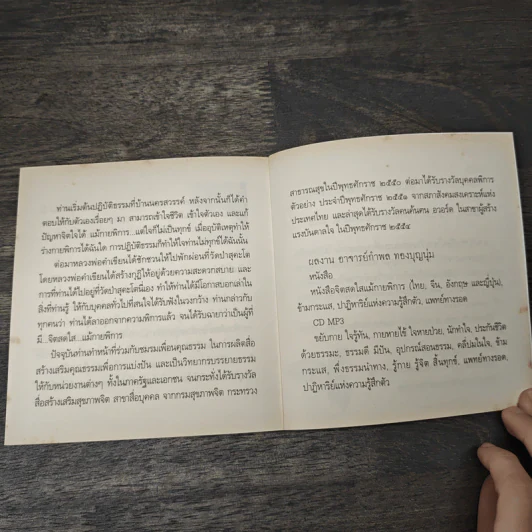 ท่านเริ่มต้นปฏิบัติธรรมที่บ้านนครสวรรค์ หลังจากนั้นก็ได้คำ
ตอบให้กับตัวเองเรื่อยๆ มา สามารถเข้าใจชีวิต เข้าใจตัวเอง และแก้
ปัญหาจิตใจได้ แม้กายพิการ...แต่ใจก็ไม่เป็นทุกข์ เมื่ออุบัติเหตุทำให้
ร่างกายพิการได้ฉันใด การปฏิบัติธรรมก็ทำให้ใจท่านไม่ทุกข์ได้ฉันนั้น
ต่อมาหลวงพ่อคำเขียนได้ชักชวนให้ไปพักผ่อนที่วัดป่าสุคะโต
โดยหลวงพ่อคำเขียนได้สร้างกุฏิให้อยู่ด้วยความสะดวกสบาย และ
การที่ท่านได้ไปอยู่ที่วัดป่าสุคะโตนี่เอง ทำให้ท่านได้มีโอกาสบอกเล่าใน
สิ่งที่ท่านรู้ ให้กับบุคคลทั่วไปที่สนใจได้รับฟังในวงกว้าง ท่านกล่าวกับ
ทุกคนว่า ท่านได้ลาออกจากความพิการแล้ว จนได้รับฉายาว่าเป็นผู้ที่
มี...จิตสดใส...แม้กายพิการ
ปัจจุบันท่านทำหน้าที่ร่วมกับชมรมเพื่อนคุณธรรม ในการผลิตสื่อ
สร้างเสริมคุณธรรมเพื่อการแบ่งปัน และเป็นวิทยากรบรรยายธรรม
ให้กับหน่วยงานต่างๆ ทั้งในภาครัฐและเอกชน จนกระทั่งได้รับรางวัล
สื่อสร้างเสริมสุขภาพจิต สาขาสื่อบุคคล จากกรมสุขภาพจิต กระทรวง
สาธารณสุขในปีพุทธศักราช ๒๕๕๐ ต่อมาได้รับรางวัลบุคคลพิการ
ตัวอย่าง ประจำปีพุทธศักราช ๒๕๕๑ จากสภาสังคมสงเคราะห์แห่ง
ประเทศไทย และล่าสุดได้รับรางวัลคนค้นฅน อวอร์ด ในสาขาผู้สร้าง
แรงบันดาลใจ ในปีพุทธศักราช ๒๕๕๔
ผลงาน อาจารย์กำพล ทองบุญนุ่ม
หนังสือ
หนังสือจิตสดใสแม้กายพิการ (ไทย, จีน, อังกฤษ และญี่ปุ่น),
ข้ามกระแส, ปาฏิหาริย์แห่งความรู้สึกตัว, แพทย์ทางรอด
CD MP3
ขยับกาย ใจรู้ทัน, กายหายไข้ ใจหายป่วย, นักทำใจ, ประกันชีวิต
ด้วยธรรมะ, ธรรมดี มีปัน, อุปกรณ์สอนธรรม, คลีปมในใจ, ข้าม
กระแส, พึ่งธรรมนำทาง, รู้กาย รู้จิต สิ้นทุกข์, แพทย์ทางรอด,
ปาฏิหาริย์แห่งความรู้สึกตัว